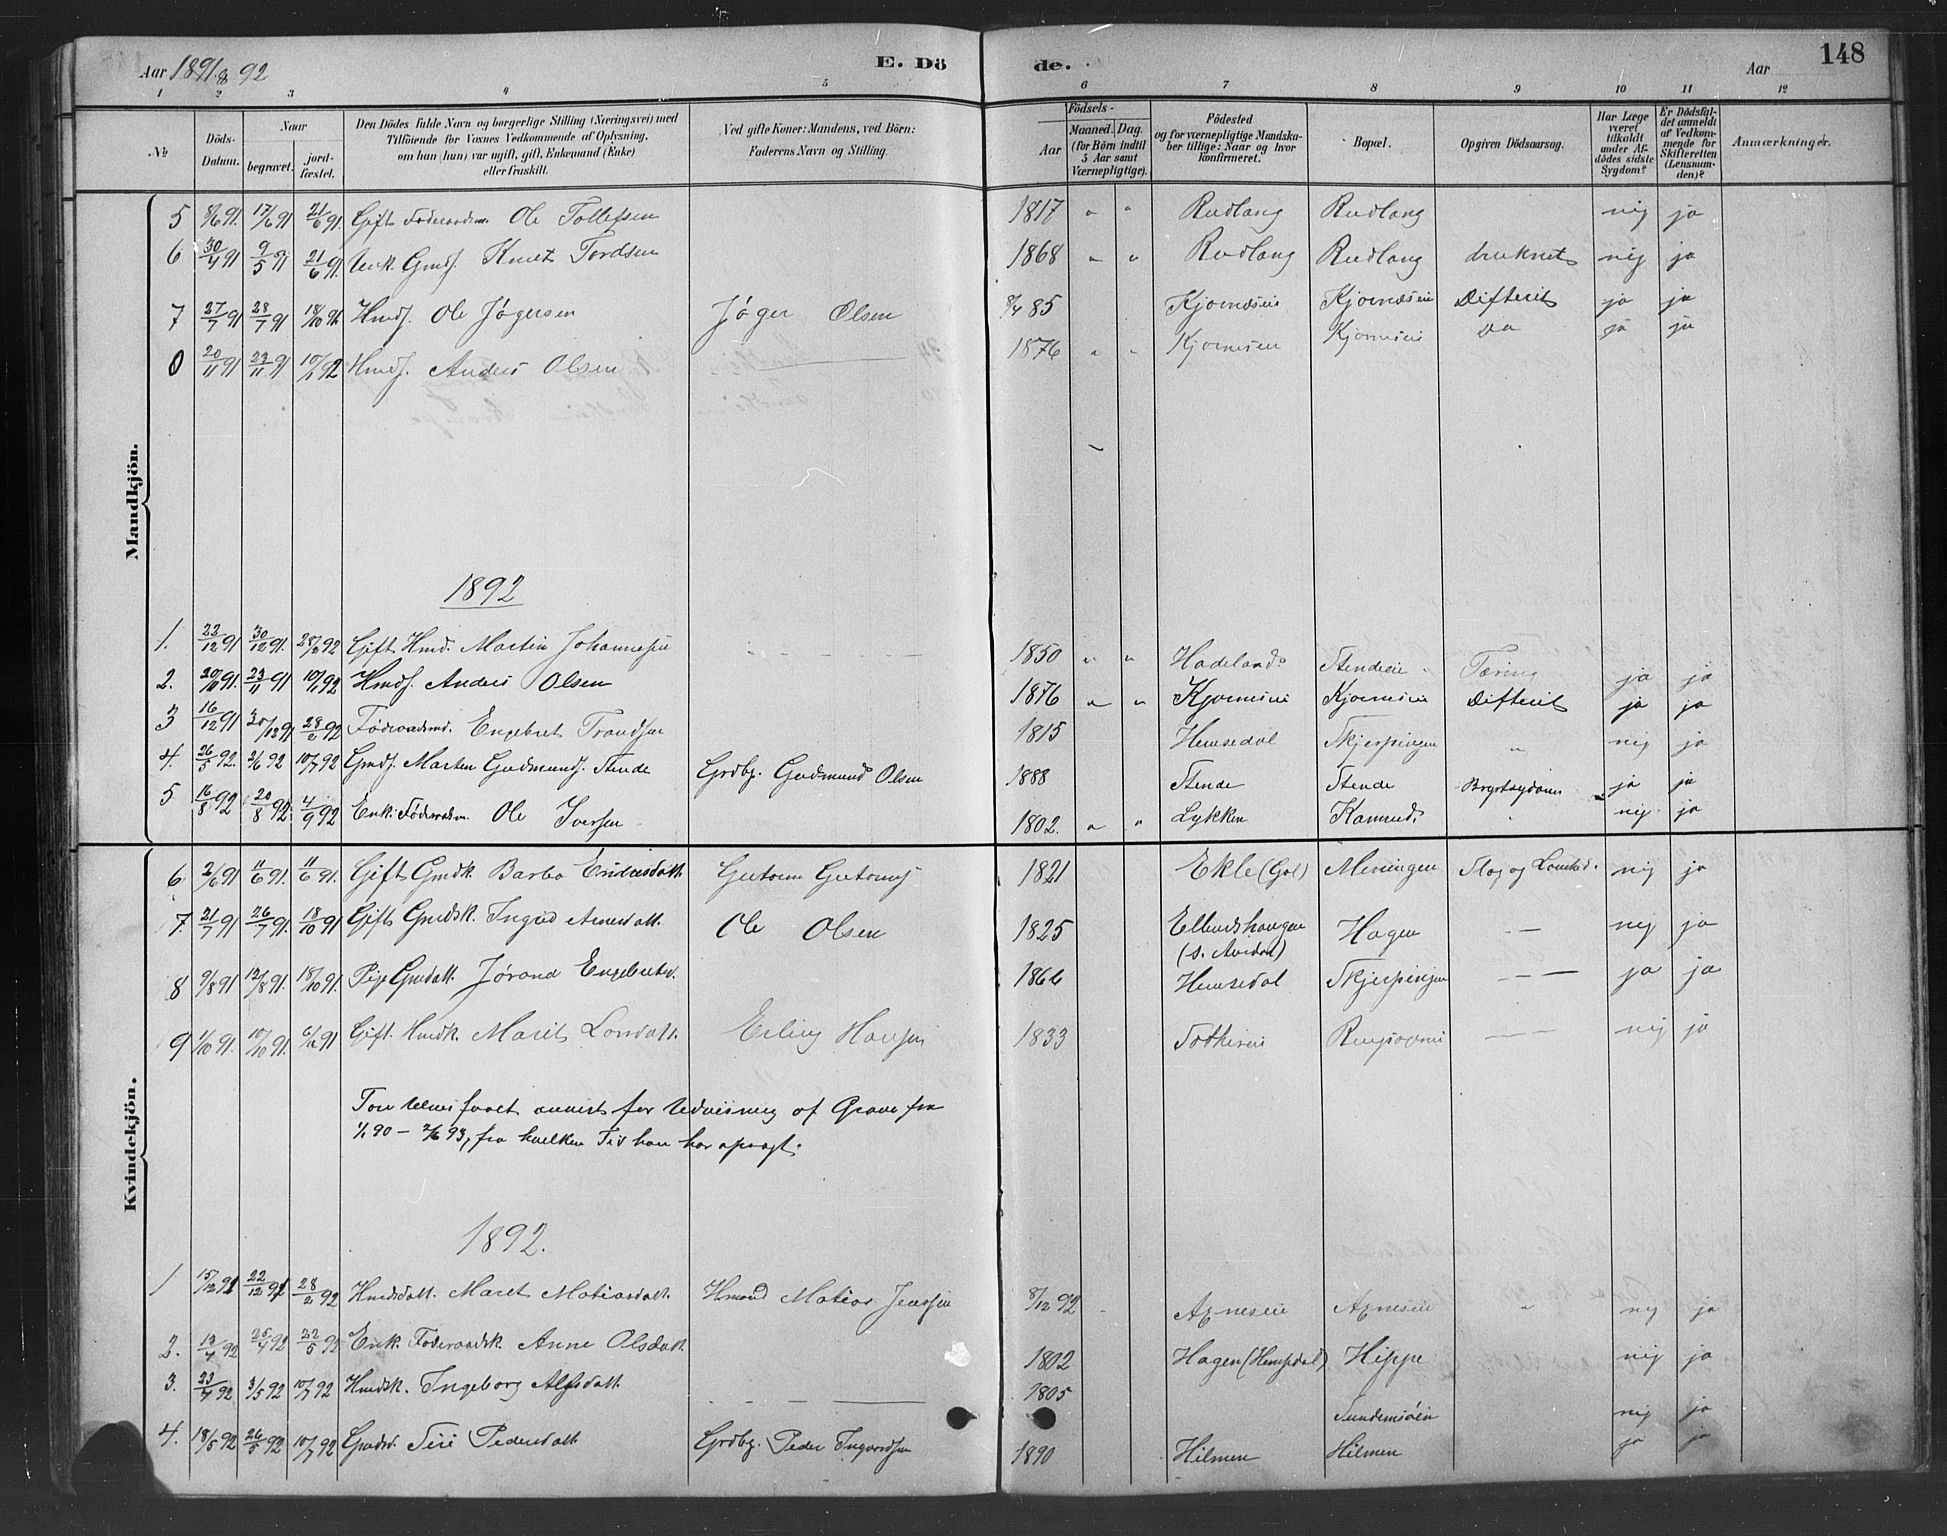 Aar 1891 & 92
E. Dö
de.
Aar
148
1 2 3 4 5 6 7 8 9 10 11 12
№
Döds-Datum.
Naar
begravet.
jord-fæstet.
Den Dödes fulde Navn og borgerlige Stilling (Næringsvei) med
Tilföiende for Voxnes Vedkommende af Oplysning,
om han (hun) var ugift, gift, Enkemand (Enke)
eller fraskilt.
Ved gifte Koner: Mandens, ved Börn:
Faderens Navn og Stilling.
Födsels-
Aar
Maaned. Dag.
(for Börn indtil
5 Aar samt
Værnepligtige).
Födested
og for værnepligtige Mandska-
ber tillige: Naar og hvor
konfirmeret.
Bopæl.
Opgiven Dödsaarsag.
Har Læge
været
tilkaldt
under Af-
dödes sidste
Sygdom?
Er Dödsfal-
det anmeldt
af Vedkom-
mende for
Skifteretten
(Lensman-
den)?
Anmærkninger.
Mandkjön.
5 8/6 91. 17/6 91 21/6 91. Gift Föderaadsm. Ole Tollefsen 1817 " " Rudlang Rudlang nej ja
6 30/4 91 9/5 91 21/6 91. Unk. Gmds. Knut Tordsen 1868 " " Rudlang Rudlang druknet nej ja
7 27/7 91 28/7 91 18/10 91 Hmds. Ole Jögersen Jöger Olsen 8/4 85 Kjornæseie Kjornæseie Difterit ja ja
8 20/11 91 23/11 91 10/1 92 Hmds. Anders Olsen 1876 " " Kjornæseie Kjornæseie Do ja ja
1892
1. 22/12 91 30/12 91. 28/2 92 Gift Hmd. Martin Johannesen 1850 " " Hadeland Stendeeie Tæring ja ja
2. 20/11 91. 23/11 91 10/1 92 Hmds. Anders Olsen 1876 " " Kjornæseie Kjornæseie Difterit ja ja
3 16/12 91 30/12 91 28/2 92 Föderaadsmd. Engebret Trondsen 1815 Hemsedal Skjerpingen " nej ja
4. 26/5 92. 2/6 92 10/7 92 Gmds. Morten Gudmunds. Stende Grdbg. Gudmund Olsen 1888 Stende Stende Brystsygdom ja ja
5 16/8 92 20/8 92 4/9 92 Enk. Föderaadsm. Ole Iversen 1802. " " Lykken Kamrud nej ja
Kvindekjön.
6 2/6 91 11/6 91. 11/6 91. Gift Gmdk. Barbo Eriksdatt. Guttorm Guttorms 1821 Ekle (Gol) Meningen Slag og Lamhed. nej ja
7. 21/7 91 26/7 91. 18/10 91 Gift Gmdsk. Ingrid Arnesdatt. Ole Olsen 1825 Ellendshaugen Hagen — nej ja
(s. Aurdal)
8 9/8 91 12/8 91. 18/10 91. Pige Gmdatt. Jörand Engebretsd. 1866 Hemsedal Skjerpingen — — ja ja
9 1/10 91. 10/10 91. 6/12 91 Gift. Hmdk. Marit Larsdatt. Erling Hansen 1833 Totheieie — — nej ja
Tore Ulnes faaet anvist for Udvisning af Grave fra
1/1 90 – 2/6 93, fra hvilken Tid han har opsagt.
1892.
1 15/12 91 22/12 91 28/2 92 Hmdsdatt. Maret Matiasdatt. Hmand Matias Jenssen 8/12 92 Axneseie Axneseie " nej ja
2. 13/4 92 25/4 92 22/5 92 Enk. Föderaadsk. Anne Olsdatt. 1802 Hagen (Hemsedal) Hippe nej ja
3. 23/4 92 3/5 92 10/7 92 Hmdsk. Ingeborg Alfsdatt. 1805 Sundemoen nej ja
4. 18/5 92 26/5 92 10/7 92 Gmdsd. Siri Pedersdatt. Grdbg. Peder Ingvardsen 1890 Hilmen Hilmen ja ja